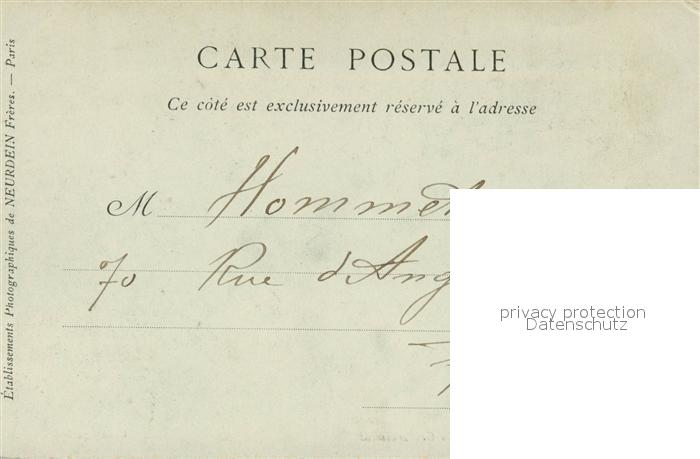 CARTE POSTALE
Ce côté est exclusivement réservé à l'adresse
M
70 Rue d'Ang
privacy protection
Datenschutz
Établissements Photographiques de NEURDEIN Frères. — Paris